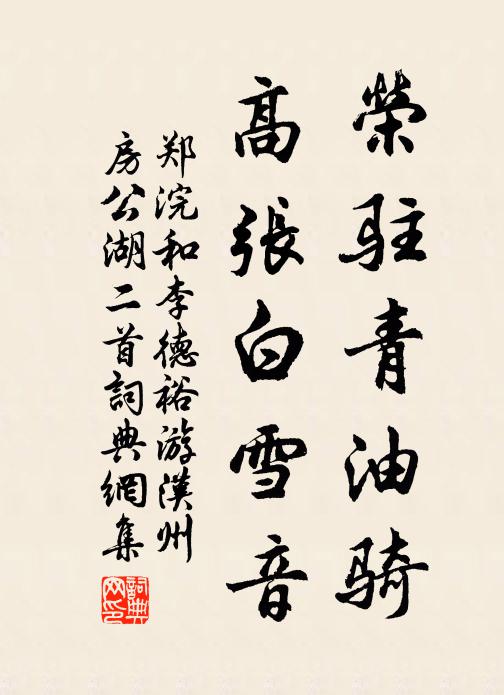 榮駐青油騎
高張白雪音
郑浣和李德裕游漢州
房公湖二首詞典網集
詞典网印